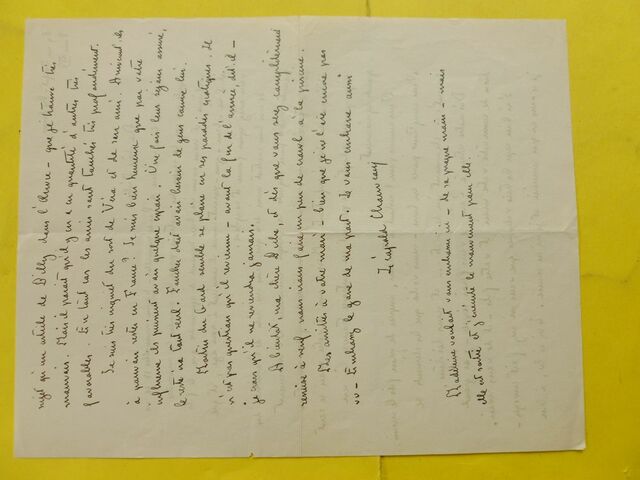 n'est qu'un article de Billy dans l'Œuvre – que je trouve très
mauvais. Mais il paraît qu'il y en a en quantité d'autres très
favorables. En tout cas les amis sont touchés très profondément.
Je suis très inquiet du sort de Véra et de son ami. Arriveront-ils
à pouvoir rester en France? Je suis bien heureux que par votre
influence ils puissent avoir quelque espoir. Une fois leur séjour assuré,
le reste ira tout seul. Fautrier doit avoir besoin de gens comme lui.
Martin du Gard semble se plaire en ses paradis exotiques. Il
n'est pas question qu'il revienne – avant la fin de l'année, dit-il –
je crois qu'il ne reviendra jamais.
A bientôt, ma chère Biche, et dès que vous serez complètement
remise à neuf, nous irons faire un peu de crawl à la piscine.
Mes amitiés à votre mari – bien que je n'l'aie encore pas
vu – Embrassez le gosse de ma part. Je vous embrasse aussi
Léopold Chauveau
Madeleine voulait vous embrasser ici – de sa propre main – mais
elle est sortie et j'exécute le mouvement pour elle.